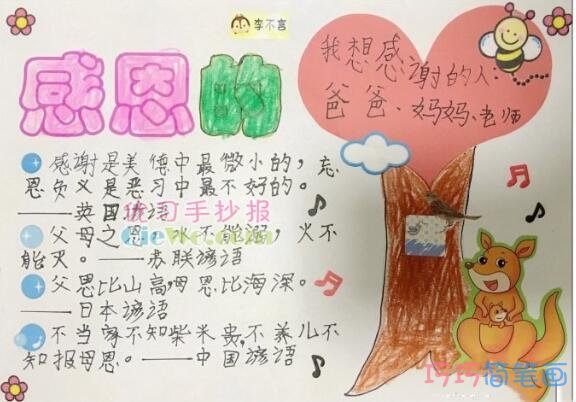 李不言
感恩
我想感谢的人
爸爸、妈妈、老师
感谢是美德中最微小的，忘
恩负义是恶习中最不好的。
——英国谚语
优习手抄报
父母之恩，水不能溺，火不
能灭。——苏联谚语
父恩比山高，母恩比海深。
——日本谚语
不当家不知柴米贵，不养儿不
知报母恩。——中国谚语
巧巧简笔画